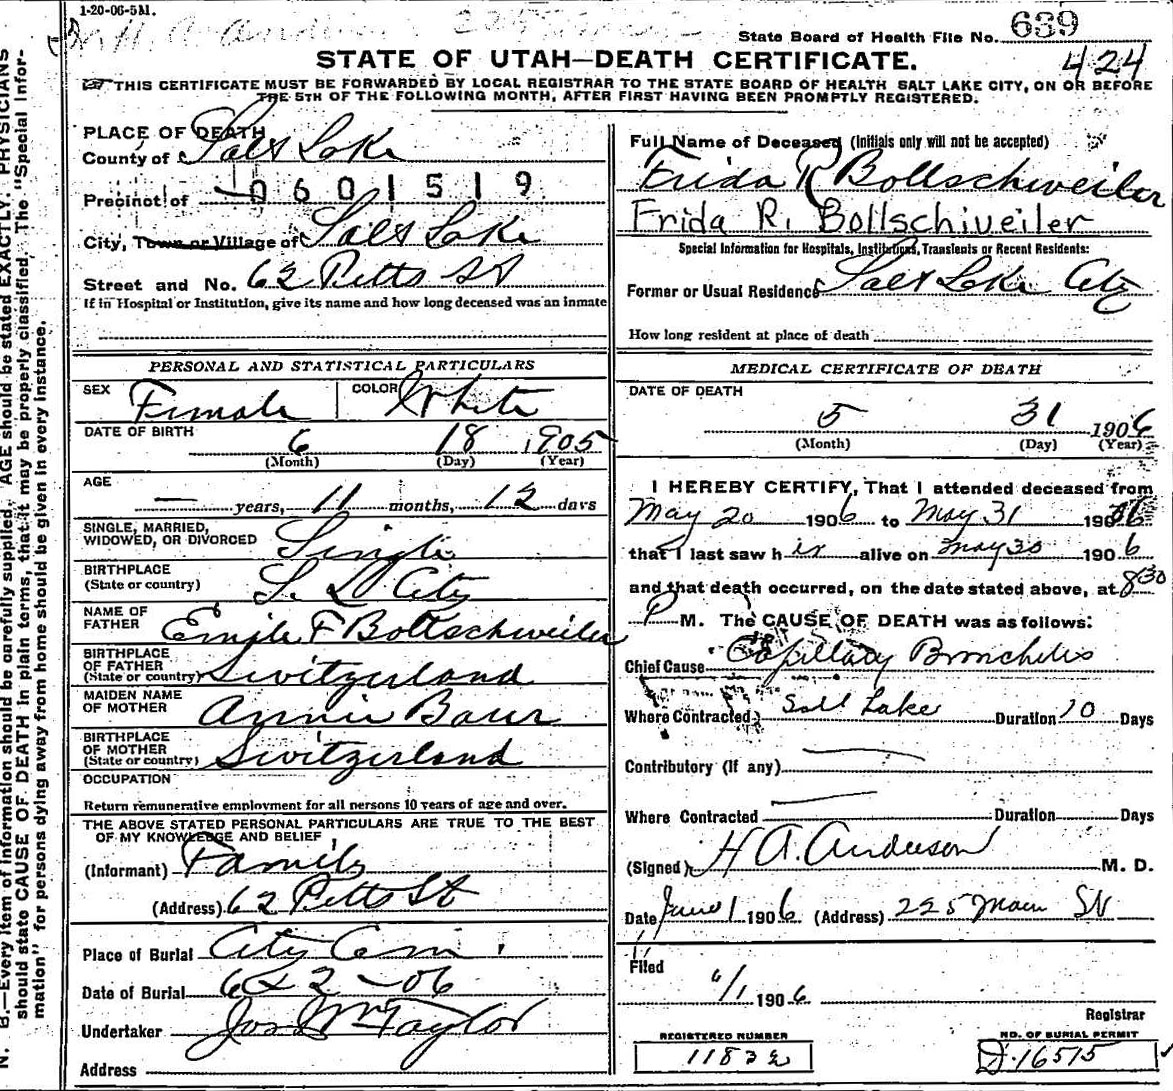 1-20-06-5M.
State Board of Health File No. 639
424
STATE OF UTAH—DEATH CERTIFICATE.
THIS CERTIFICATE MUST BE FORWARDED BY LOCAL REGISTRAR TO THE STATE BOARD OF HEALTH SALT LAKE CITY, ON OR BEFORE
THE 5TH OF THE FOLLOWING MONTH, AFTER FIRST HAVING BEEN PROMPTLY REGISTERED.
N. B.—Every item of information should be carefully supplied. AGE should be stated EXACTLY. PHYSICIANS
should state CAUSE OF DEATH in plain terms, that it may be properly classified. The "Special Infor-
mation" for persons dying away from home should be given in every instance.
PLACE OF DEATH
County of Salt Lake
Precinct of 0601519
City, Town or Village of Salt Lake
Street and No. 62 Pitts St
If in Hospital or Institution, give its name and how long deceased was an inmate
PERSONAL AND STATISTICAL PARTICULARS
SEX Female COLOR White
DATE OF BIRTH 6 18 1905
(Month) (Day) (Year)
AGE — years, 11 months, 12 days
SINGLE, MARRIED,
WIDOWED, OR DIVORCED Single
BIRTHPLACE
(State or country) S. L. City
NAME OF
FATHER Emile F Bollschweiler
BIRTHPLACE
OF FATHER
(State or country) Switzerland
MAIDEN NAME
OF MOTHER Annie Baur
BIRTHPLACE
OF MOTHER
(State or country) Switzerland
OCCUPATION
Return remunerative employment for all persons 10 years of age and over.
THE ABOVE STATED PERSONAL PARTICULARS ARE TRUE TO THE BEST
OF MY KNOWLEDGE AND BELIEF
(Informant) Family
(Address) 62 Pitts St
Place of Burial City Cem
Date of Burial 6 2 -06
Undertaker Jos Wm Taylor
Address
Full Name of Deceased (Initials only will not be accepted)
Frida R Bollschweiler
Frida R. Bollschiveiler
Special Information for Hospitals, Institutions, Transients or Recent Residents:
Former or Usual Residence Salt Lake City
How long resident at place of death
MEDICAL CERTIFICATE OF DEATH
DATE OF DEATH
5 31 1906
(Month) (Day) (Year)
I HEREBY CERTIFY, That I attended deceased from
May 20 1906 to May 31 1906
that I last saw her alive on May 30 1906
and that death occurred, on the date stated above, at 8 30
P M. The CAUSE OF DEATH was as follows:
Chief Cause Capillary Bronchitis
Where Contracted Salt Lake Duration 10 Days
Contributory (If any) —
Where Contracted — Duration Days
(Signed) H A. Anderson M. D.
Date June 1 1906 (Address) 225 Main St
Filed
6/1 1906
Registrar
REGISTERED NUMBER
11832
NO. OF BURIAL PERMIT
D-16515